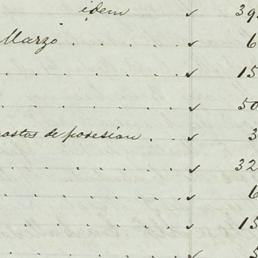 idem ✓ 39
Marzo ✓ 6
✓ 15
✓ 50
de posesion . ✓ 3
✓ 32
✓ 6
✓ 15